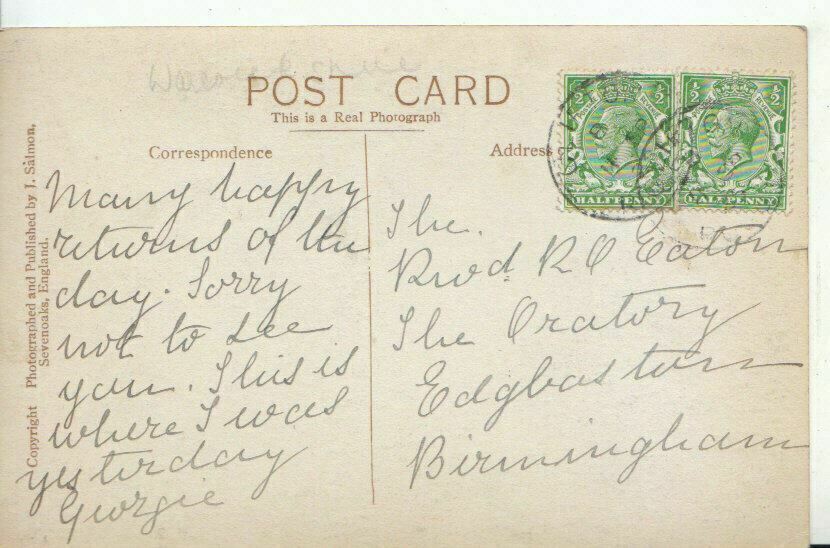 POST CARD
This is a Real Photograph
Correspondence
Address
Copyright Photographed and Published by J. Salmon,
Sevenoaks, England.
Many happy
returns of the
day. Sorry
not to see
you. This is
where I was
yesterday
Georgie
The.
Revd. R O Eaton
The Oratory
Edgbaston
Birmingham
½ ½
HALFPENNY
½ ½
HALFPENNY